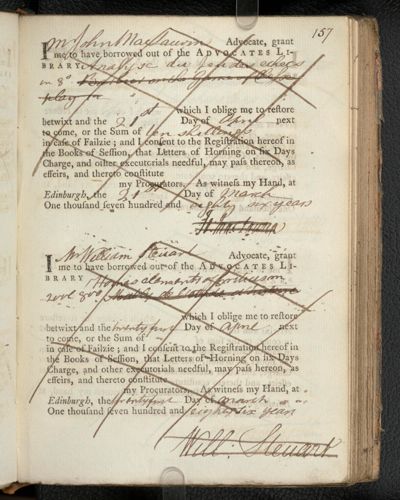 157
I Mr John Maclaurin Advocate, grant
me to have borrowed out of the ADVOCATES LI-
BRARY Analyse des
in 8º
play for
which I oblige me to restore
betwixt and the 21st Day of April next
to come, or the Sum of ten shillings
in case of Failzie; and I consent to the Registration hereof in
the Books of Session, that Letters of Horning on six Days
Charge, and other executorials needful, may pass hereon, as
effeirs, and thereto constitute
my Procurators. As witness my Hand, at
Edinburgh, the 21st Day of March
One thousand seven hundred and eighty six years
I Mr William Steuart Advocate, grant
me to have borrowed out of the ADVOCATES LI-
BRARY Homes elements of criticism
2 vol 8vo
which I oblige me to restore
betwixt and the twenty first Day of April next
to come, or the Sum of
in case of Failzie; and I consent to the Registration hereof in
the Books of Session, that Letters of Horning on six Days
Charge, and other executorials needful, may pass hereon, as
effeirs, and thereto constitute
my Procurators. As witness my Hand, at
Edinburgh, the twenty first Day of March
One thousand seven hundred and eighty six years
Will. Steuart